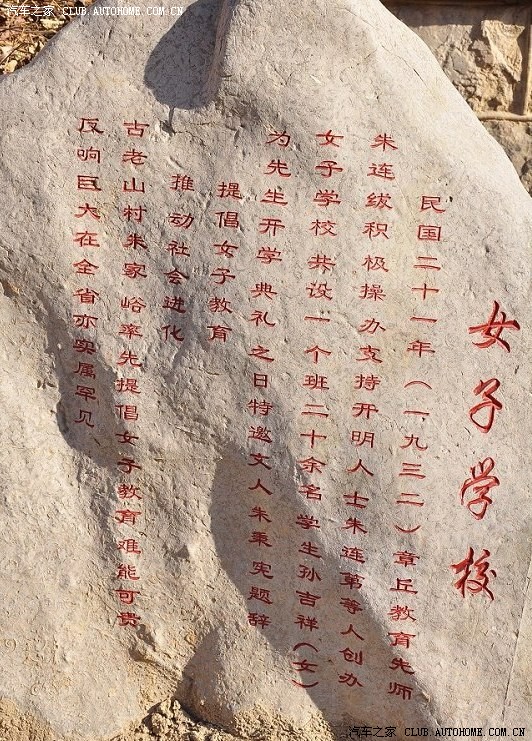 汽车之家 CLUB.AUTOHOME.COM.CN
女子学校
民国二十一年（一九三二）章丘教育先师
朱连绂积极操办支持开明人士朱连第等人创办
女子学校共设一个班二十余名学生孙吉祥（女）
为先生开学典礼之日特邀文人朱秉宪题辞
提倡女子教育
推动社会进化
古老山村朱家峪率先提倡女子教育难能可贵
反响巨大在全省亦实属罕见
汽车之家 CLUB.AUTOHOME.COM.CN